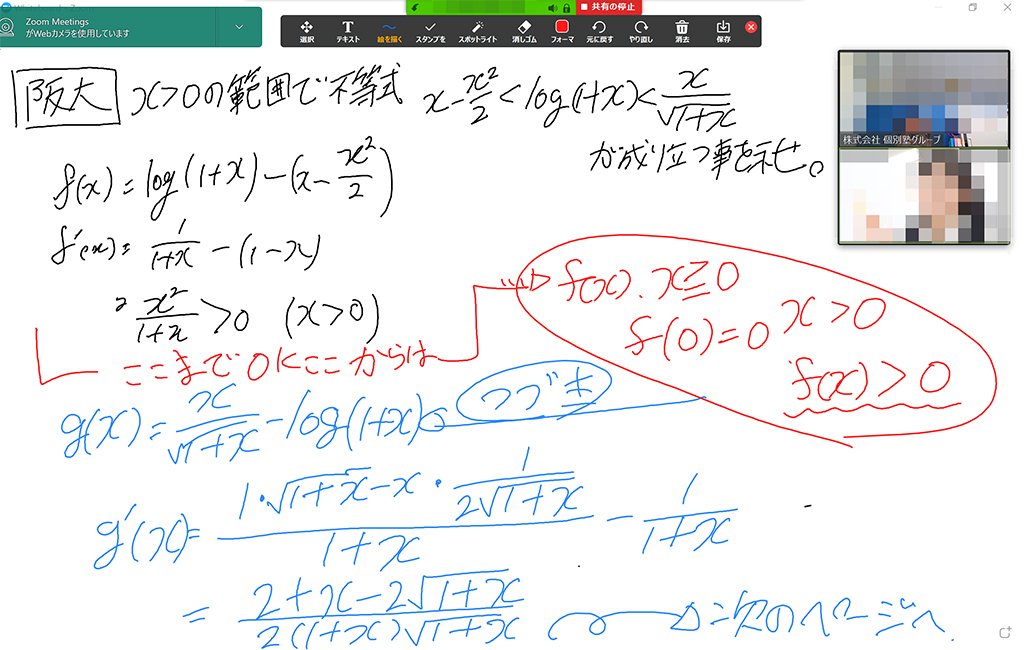 Zoom Meetings
がWebカメラを使用しています
共有の停止
選択 テキスト 絵を描く スタンプを スポットライト 消しゴム フォーマ 元に戻す やり直し 消去 保存
株式会社 個別塾グループ
阪大 x>0の範囲で不等式 x-x²/2<log(1+x)<x/√1+x
が成り立つ事を示せ。
f(x)=log(1+x)-(x-x²/2)
f'(x)=1/1+x-(1-x)
x²/1+x>0 (x>0)
ここまでOKここからは
f(x).x≧0
f(0)=0 x>0
f(x)>0
g(x)=x/√1+x-log(1+x)
g'(x)=1・√1+x-x・1/2√1+x/1+x-1/1+x
=2+x-2√1+x/2(1+x)√1+x 次のページへ